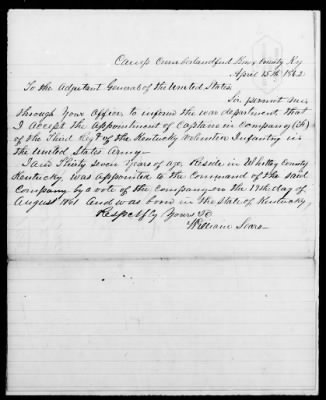 Camp Cumberland ford Knox County Ky
April 15th 1862
To the Adjutant General of the United States
Sir permit me
through Your Office to inform the war department, that
I accept the Appointment of Captain in Company (K)
of the Third Regt of the Kentucky Volunteer Infantry in
the United States Army—
I am Thirty seven Years of age Reside in Whitley County
Kentucky. was appointed to the Command of the said
Company by a vote of the Company on the 17th day of
August 1861 And was born in the State of Kentucky,
Respectfly Yours &c
William Sears